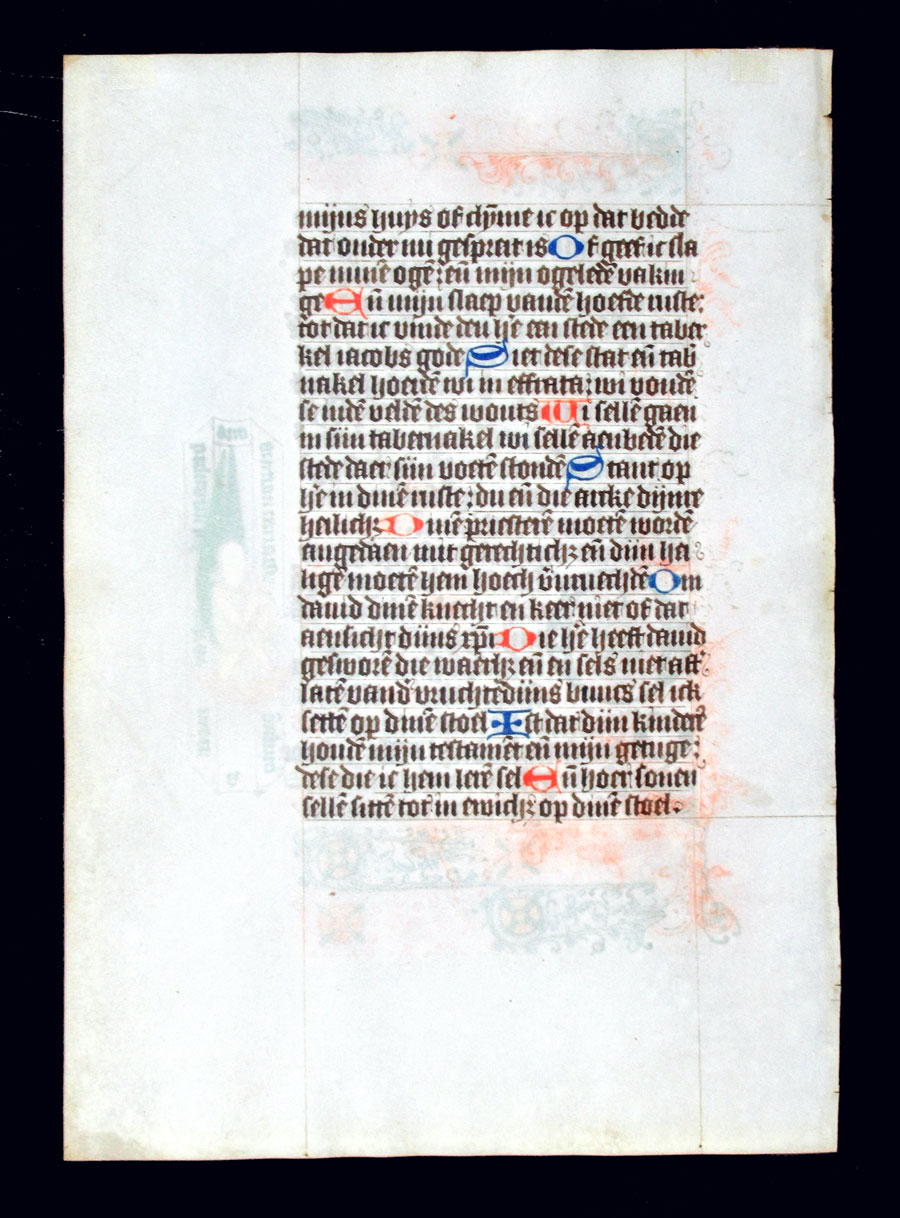 mijns huys of clȳme ic op dat bedde
dat onder mi gespreit is Of geef ic sla
pe minē ogē: eñ mijn ogeledē vakin
ge Eñ mijn slaep vandē hoefde ruste:
tot dat ic vinde den hē een stede een taber
kel iacobs gode Siet dese stat eñ tab
nakel hoerdē wi in effrata: wi vondē
se indē veldē des wouts Wi sellē gaen
in sijn tabernakel wi sellē aenbedē die
stede daer sijn voetē stondē Stant op
hē in dinē ruste: du eñ die arcke dijnre
heilichꝫ Dinē priesterē moetē wordē
angedaen mit gerechtichꝫ eñ dijn hei
ligē moetē hem hoech v̄vruechdē Om
dauid dinē knecht en keer niet of dat
aensicht dijns xp̄i Die hē heeft dauid
gesworē die waerhꝫ eñ en sels niet aff
latē vand vruchte dijns buucs sel ick
settē op dinē stoel Ist dat dijn kinderē
houdē mijn testamēt eñ mijn getuge:
dese die ic hem lerē sel Eñ hoer sonen
sellē sittē tot in ewichꝫ op dinē stoel.